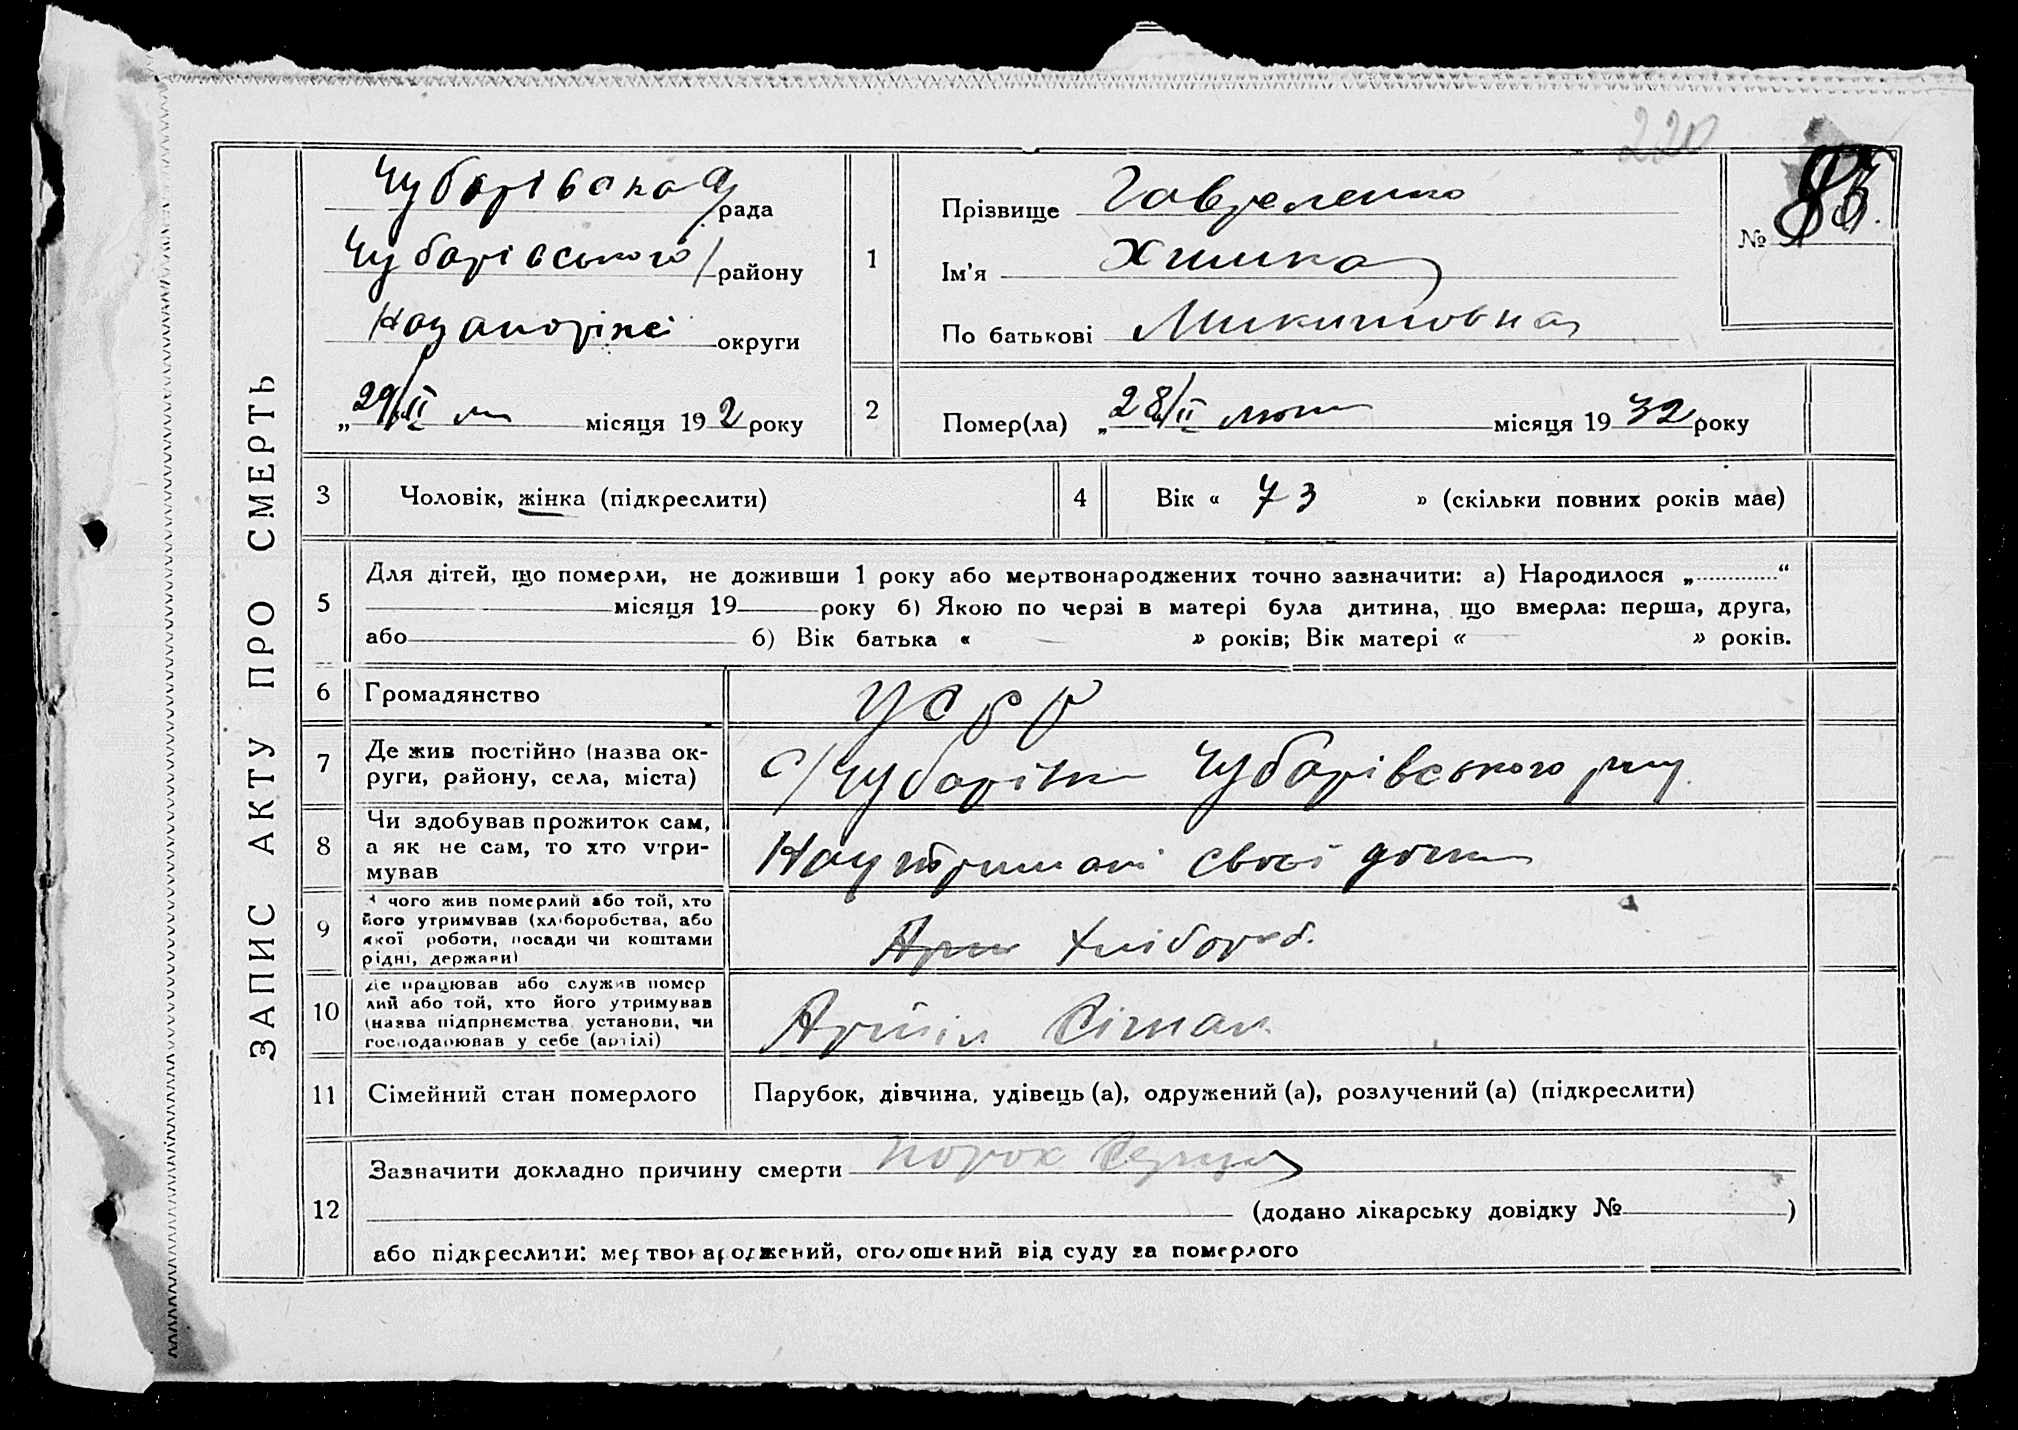 220
ЗАПИС АКТУ ПРО СМЕРТЬ
Чубарівська рада
Чубарівського району
округи
„29/II місяця 192 року
1
Прізвище Гавреленко
Ім'я Химка
По батькові Микитовна
№ 85
2
Помер(ла) „28/II місяця 1932 року
3
Чоловік, жінка (підкреслити)
4
Вік « 73 » (скільки повних років має)
5
Для дітей, що померли, не доживши 1 року або мертвонароджених точно зазначити: а) Народилося „ “
місяця 19 року б) Якою по черзі в матері була дитина, що вмерла: перша, друга,
або б) Вік батька « » років; Вік матері « » років.
6
Громадянство УСРР
7
Де жив постійно (назва ок-
руги, району, села, міста)
с/Чубарівка Чубарівського р-ну
8
Чи здобував прожиток сам,
а як не сам, то хто утри-
мував
На утримані своєї дочки
9
З чого жив померлий або той, хто
його утримував (хліборобства, або
якої роботи, посади чи коштами
рідні, держави)
хлібороб.
10
Де працював або служив помер
лий або той, хто його утримував
(назва підприємства, установи, чи
господарював у себе (артілі)
Артіль
11
Сімейний стан померлого
Парубок, дівчина, удівець (а), одружений (а), розлучений (а) (підкреслити)
12
Зазначити докладно причину смерти порок сердця
(додано лікарську довідку № )
або підкреслити: мертвонароджений, оголошений від суду за померлого